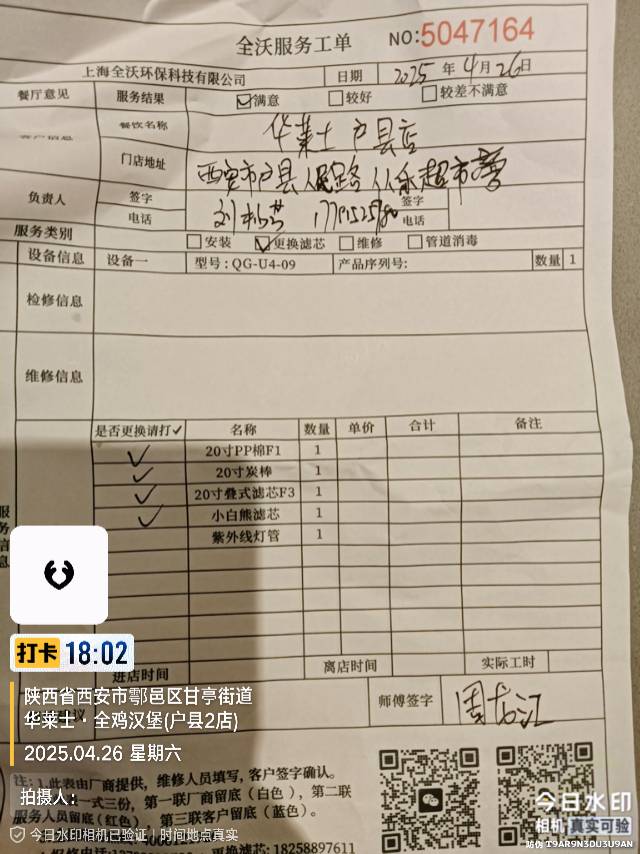 全沃服务工单 NO:5047164
上海全沃环保科技有限公司 日期 2025年4月26日
餐厅意见 服务结果 ☑满意 □较好 □较差不满意
餐饮名称 华莱士 户县店
门店地址 西安市户县人民路
负责人 签字 签字
电话 电话
服务类别 □安装 ☑更换滤芯 □维修 □管道消毒
设备信息 设备一 型号:QG-U4-09 产品序列号: 数量 1
检修信息
维修信息
是否更换请打✓ 名称 数量 单价 合计 备注
✓ 20寸PP棉F1 1
✓ 20寸炭棒 1
✓ 20寸叠式滤芯F3 1
✓ 小白熊滤芯 1
紫外线灯管 1
进店时间 离店时间 实际工时
师傅签字
注:1.此表由厂商提供,维修人员填写,客户签字确认。
一式三份,第一联厂商留底(白色),第二联
服务人员留底(红色),第三联客户留底(蓝色)。
更换滤芯:18258897611
打卡 18:02
陕西省西安市鄠邑区甘亭街道
华莱士·全鸡汉堡(户县2店)
2025.04.26 星期六
拍摄人:
今日水印相机已验证 | 时间地点真实
今日水印
相机 真实可验
防伪 T9AR9N3DU3U9AN